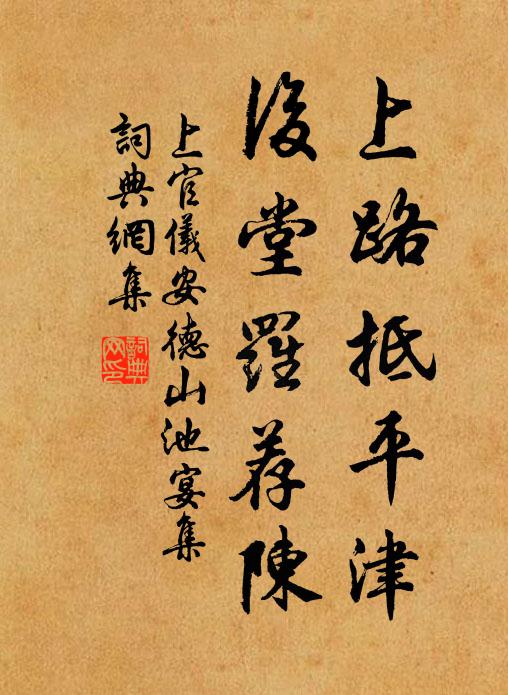 上路抵平津
後堂羅荐陳
上官儀安德山池宴集
詞典網集
詞典網印